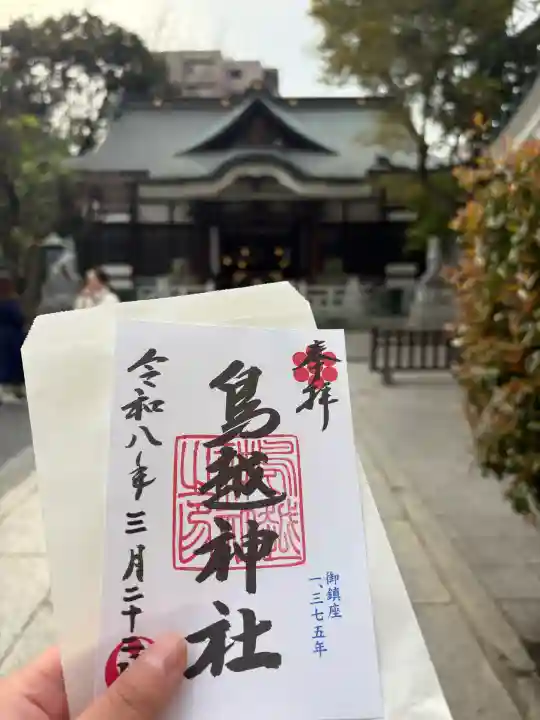 奉拝
鳥越神社
御鎮座
一、三七五年
令和八年三月二十